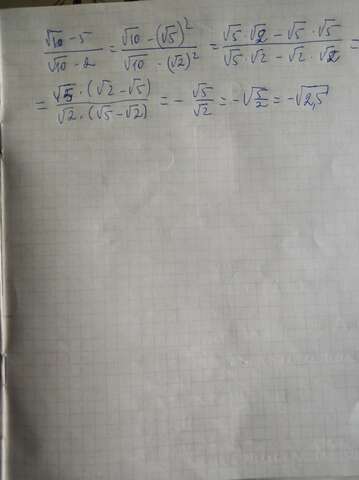 (√10 - 5)/(√10 - 2) = (√10 - (√5)²)/(√10 - (√2)²) = (√5 · √2 - √5 · √5)/(√5 · √2 - √2 · √2) =
= (√5 · (√2 - √5))/(√2 · (√5 - √2)) = - √5/√2 = -√(5/2) = -√2,5